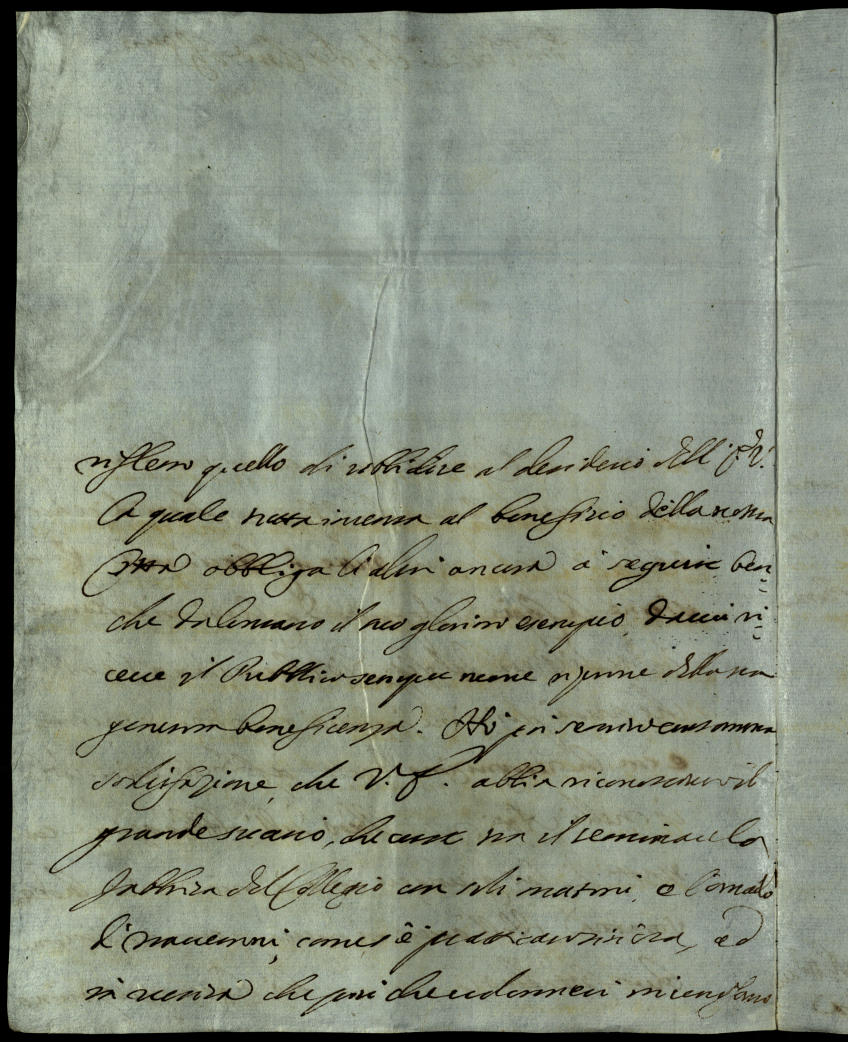 riflesso quello di ubbidire al desiderio dell' E. V.
la quale tutta intenta al beneficio della nostra
Città obbliga li altri ancora à seguire ben
che da lontano il suo glorioso esempio, da cui ri
ceve il Pubblico sempre nuove riprove della sua
generosa beneficenza. Ho poi sentito con somma
sodisfazione, che V. E. abbia riconosciuto il
grande svario, che corre tra il terminare la
fabbrica del Collegio con soli mattoni, e l'ornarlo
di macigni, come si è praticato sin' ora, ed
in verità che